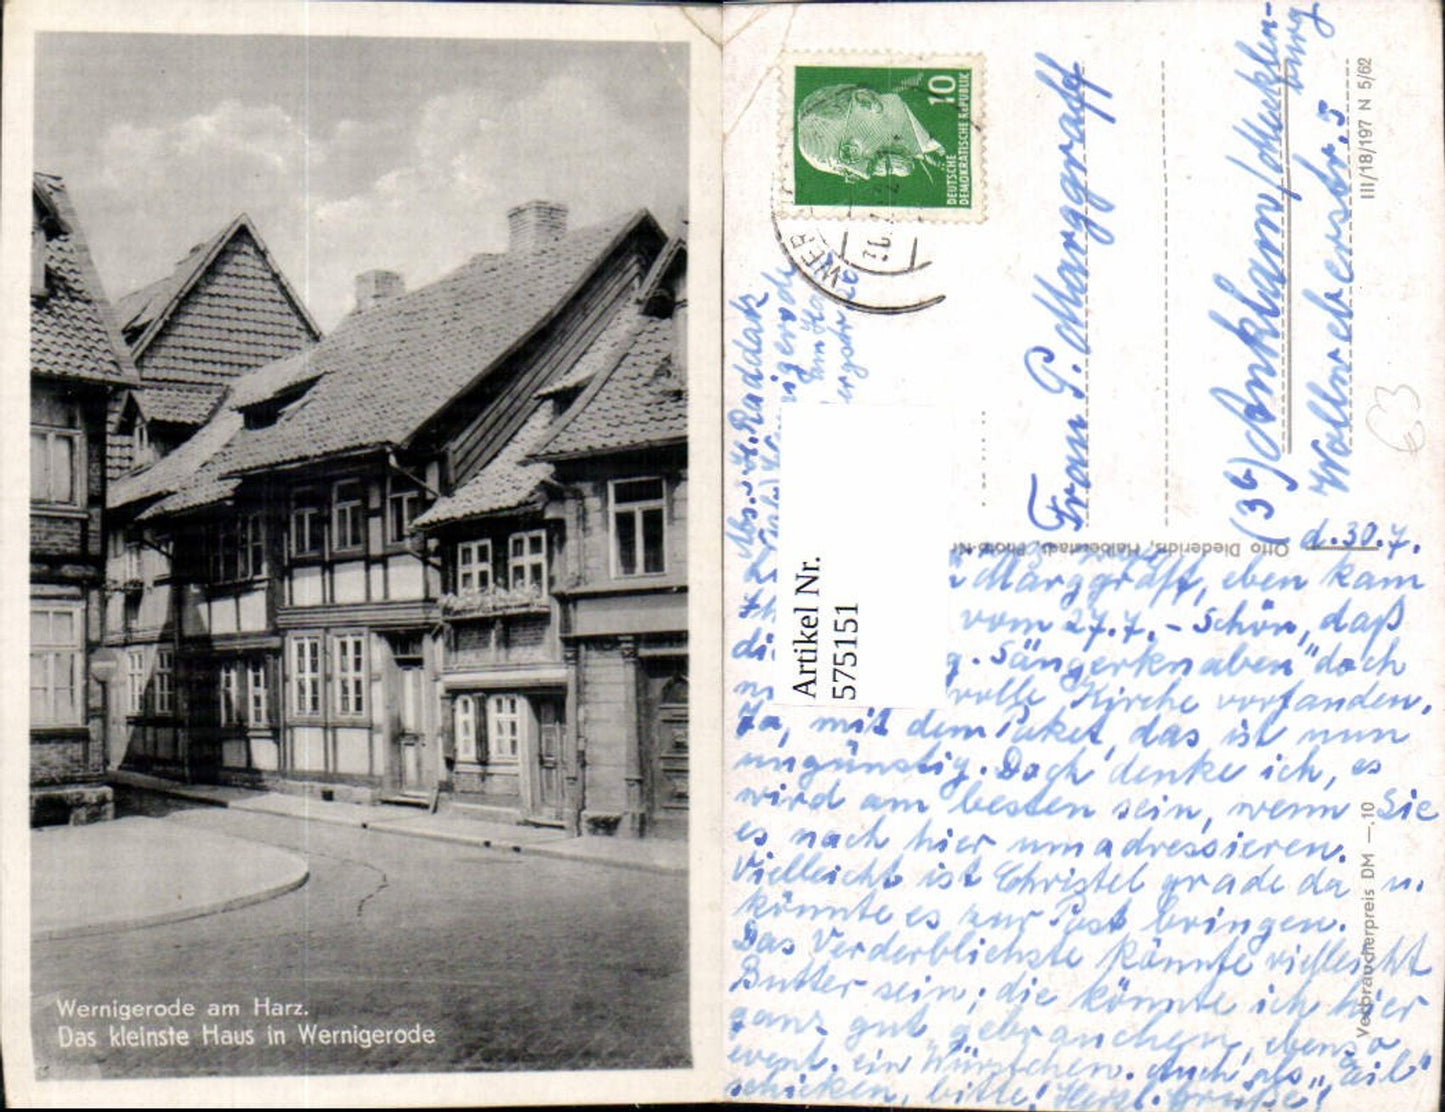 Wernigerode am Harz.
Das kleinste Haus in Wernigerode
10
DEUTSCHE
DEMOKRATISCHE REPUBLIK
WER
Frau P. Marggraff
(3b) Anklam/Mecklen-
burg
Wollweberstr. 5
III/18/197 N 5/62
Otto Diederichs, Halberstadt, Photo-Nr
Verbraucherpreis DM —.10
Artikel Nr.
575151
Abs.: H. Raddak
d. 30.7.
Marggraff, eben kam
vom 27.7. - Schön, daß
di g. Sängerknaben" doch
volle Kirche vorfanden.
Ja, mit dem Paket, das ist nun
ungünstig. Doch denke ich, es
wird am besten sein, wenn Sie
es nach hier umadressieren.
Vielleicht ist Christel grade da u.
könnte es zur Post bringen.
Das Verderblichste könnte vielleicht
Butter sein; die könnte ich hier
ganz gut gebrauchen, ebenso
event. ein Würstchen. Auch als "Eil"
schicken, bitte! Herzl. Grüße!